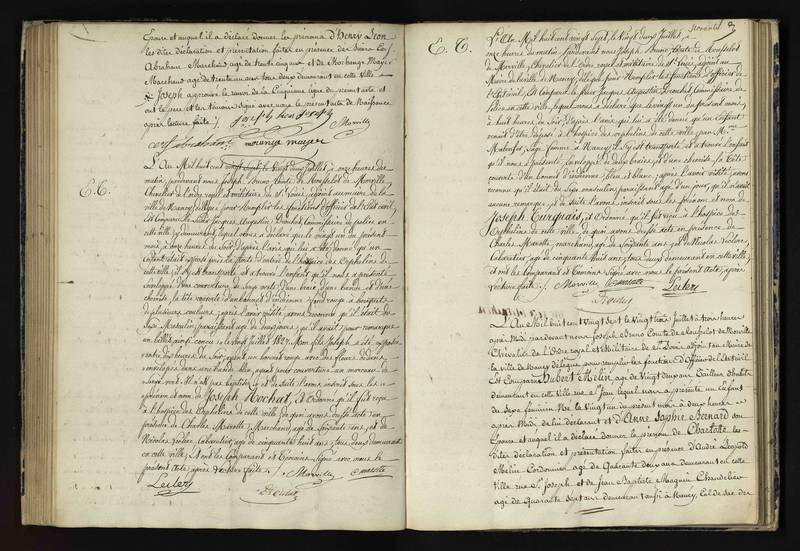 Epouse et auquel il a déclaré donner les prénoms d'Henry Leon
les dites déclaration et présentation faites en présence des Sieurs
Abraham Marchand agé de trente cinq ans et de Mayer
Marchand agé de trente un ans tous deux demeurant en cette ville
Joseph approuvé le renvoi de la Cinquieme ligne du présent acte et
ont le père et les témoins signé avec nous le présent acte de Naissance
après lecture faite
Morville
mayer
E.C.
L'An Mil huit cent vingt sept le Vingt deux Juillet à onze heures du
matin, pardevant nous Joseph Bruno Comte de Mousselot de Morville
Chevalier de l'ordre royal et militaire de St Louis, adjoint au maire de la
ville de Nancy délégué pour Remplir les fonctions d'officier de l'Etat civil,
Est Comparu le Sieur Jacques Augustin Drouhot, Commissaire de police en
cette ville y demeurant, lequel nous a déclaré que le vingt un du présent
mois, à onze heures du Soir, d'après l'avis qui lui a été donné qu'un
enfant était exposé près la porte d'entrée de l'hospice des Orphelins de
cette ville, il s'y est transporté et a trouvé l'enfant qu'il nous a présenté
enveloppé d'une couverture de serge verte, d'un braie, d'une bande et d'une
chemise, la tête couverte d'un bonnet d'indienne fond rouge à bouquets
de plusieurs couleurs; après l'avoir visité, avons reconnu qu'il était du
Sexe Masculin, paraissant agé de deux jours, qu'il avait pour remarques
un billet ainsi conçu: le vingt Juillet 1827. Mon fils Joseph a été exposé
entre dix heures du Soir, ayant un bonnet rouge avec des fleurs dedans,
enveloppé dans une bande bleue ayant pour couverture un morceau de
Serge vert. Il n'est pas baptisé; et de suite l'avons inscrit sous les
prénom et nom de Joseph Rochat, Et Ordonné qu'il fût reçu
à l'hospice des Orphelins de cette ville, de quoi avons dressé acte en
présence de Charles Marotte, Marchand agé de soixante ans, et de
Nicolas Leclere, Cabaretier, agé de cinquante huit ans, tous deux demeurant
en cette ville, Et ont les Comparant et Témoins Signé avec nous le
présent Acte, après lecture faite.
Morville
Marotte
Leclere
Drouhot
E.C.
L'An Mil huit cent vingt Sept, le Vingt deux Juillet, à
onze heures du matin, pardevant nous Joseph Bruno Comte de Mousselot
de Morville, Chevalier de l'ordre royal et militaire de St Louis, adjoint au
Maire de la ville de Nancy, délégué pour Remplir les fonctions d'officier de
l'Etat civil, Est Comparu le Sieur Jacques Augustin Drouhot, Commissaire de
Police en cette ville, lequel nous a déclaré que le vingt un du présent mois,
à huit heures du Soir, d'après l'avis qui lui a été donné qu'un Enfant
venait d'être déposé à l'hospice des orphelins de cette ville, par Me
Sage femme à Nancy il s'y est transporté et a trouvé l'enfant
qu'il nous a présenté, enveloppé de deux braies, et d'une chemise, la tête
couverte d'un bonnet d'indienne bleu et blanc; après l'avoir visité, avons
reconnu qu'il était du Sexe masculin paraissant agé d'un jour, qu'il n'avait
aucunes remarques, et de suite l'avons inscrit sous les prénom et nom de
Joseph Turquais, Et Ordonné qu'il fût reçu à l'hospice des
Orphelins de cette ville, de quoi avons dressé acte en présence de
Charles Marotte, marchand, agé de soixante ans, et de Nicolas Leclere,
Cabaretier, agé de cinquante huit ans, tous deux demeurant en cette ville,
et ont les Comparant et Témoins Signé avec nous le présent Acte, après
Lecture faite.
Morville
Marotte
Leclere
Drouhot
L'An Mil huit cent Vingt Sept le Vingt trois Juillet à trois heures
après Midi pardevant nous Joseph Bruno Comte de Mousselot de Morville
Chevalier de l'Ordre royal et Militaire de St Louis adjoint au Maire de
la ville de Nancy délégué pour remplir les fonctions d'Officier de l'Etat civil
Est Comparu Hubert Melin agé de Vingt deux ans Tailleur d'habits
demeurant en cette Ville rue St Jean lequel nous a présenté un Enfant
du Sexe féminin Née le Vingt un du présent mois à deux heures
après Midi de lui déclarant et d'Anne Sophie Bernard son
Epouse et auquel il a déclaré donner le prénom de Charlotte les
dites déclaration et présentation faites en présence d'André Léopold
Melin Cordonnier agé de Quarante deux ans demeurant en cette
Ville rue St Joseph et de Jean Baptiste Magnien Chandelier
agé de Quarante Sept ans demeurant aussi à Nancy, Cul de Sac des